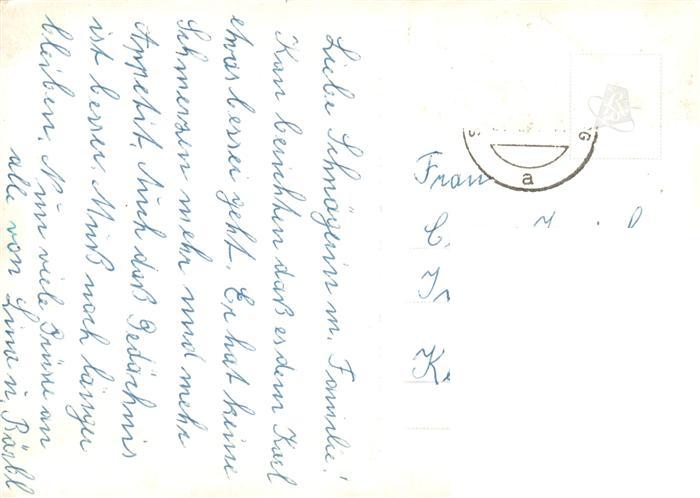 Liebe Schwägerin m. Familie!
Kan berichten daß es dem Karl
etwas besser geht. Er hat keine
Schmerzen mehr und mehr
Appetit. Auch daß Gedächnis
ist besser. Muß noch länger
bleiben. Nun viele Grüße an
alle von Lina u. Bärbl
Frau
a